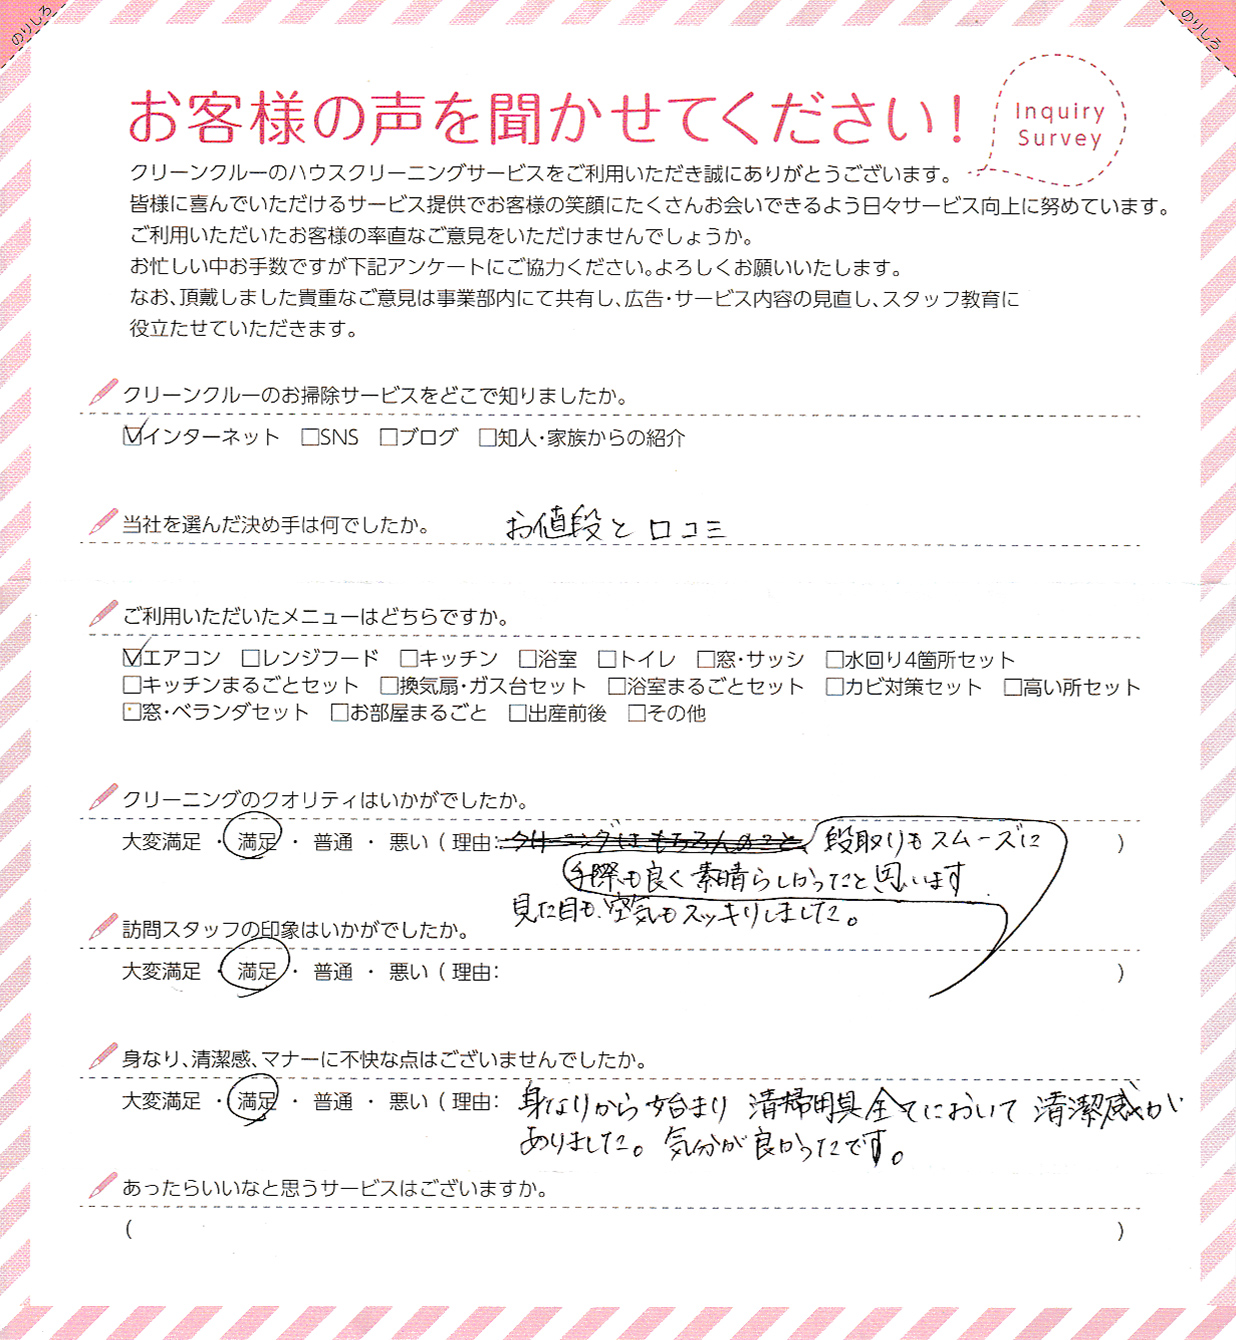 のりしろ
のりしろ
お客様の声を聞かせてください!
Inquiry
Survey
クリーンクルーのハウスクリーニングサービスをご利用いただき誠にありがとうございます。
皆様に喜んでいただけるサービス提供でお客様の笑顔にたくさんお会いできるよう日々サービス向上に努めています。
ご利用いただいたお客様の率直なご意見をいただけませんでしょうか。
お忙しい中お手数ですが下記アンケートにご協力ください。よろしくお願いいたします。
なお、頂戴しました貴重なご意見は事業部内にて共有し、広告・サービス内容の見直し、スタッフ教育に
役立たせていただきます。
クリーンクルーのお掃除サービスをどこで知りましたか。
☑インターネット □SNS □ブログ □知人・家族からの紹介
当社を選んだ決め手は何でしたか。 お値段と口コミ
ご利用いただいたメニューはどちらですか。
☑エアコン □レンジフード □キッチン □浴室 □トイレ □窓・サッシ □水回り4箇所セット
□キッチンまるごとセット □換気扇・ガス台セット □浴室まるごとセット □カビ対策セット □高い所セット
□窓・ベランダセット □お部屋まるごと □出産前後 □その他
クリーニングのクオリティはいかがでしたか。
大変満足 ・ 満足 ・ 普通 ・ 悪い ( 理由: クリーニングはもちろんのこと、段取りもスムーズに )
手際も良く素晴らしかったと思います
見た目も、空気もスッキリしました。
訪問スタッフの印象はいかがでしたか。
大変満足 ・ 満足 ・ 普通 ・ 悪い ( 理由: )
身なり、清潔感、マナーに不快な点はございませんでしたか。
大変満足 ・ 満足 ・ 普通 ・ 悪い ( 理由: 身なりから始まり 清掃用具全てにおいて 清潔感が
ありました。気分が良かったです。
あったらいいなと思うサービスはございますか。
( )